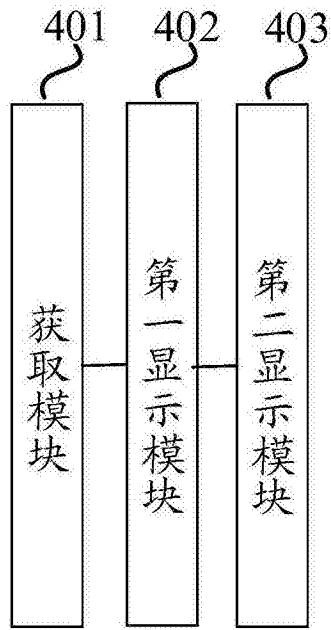 401 402 403
获取模块
第一显示模块
第二显示模块